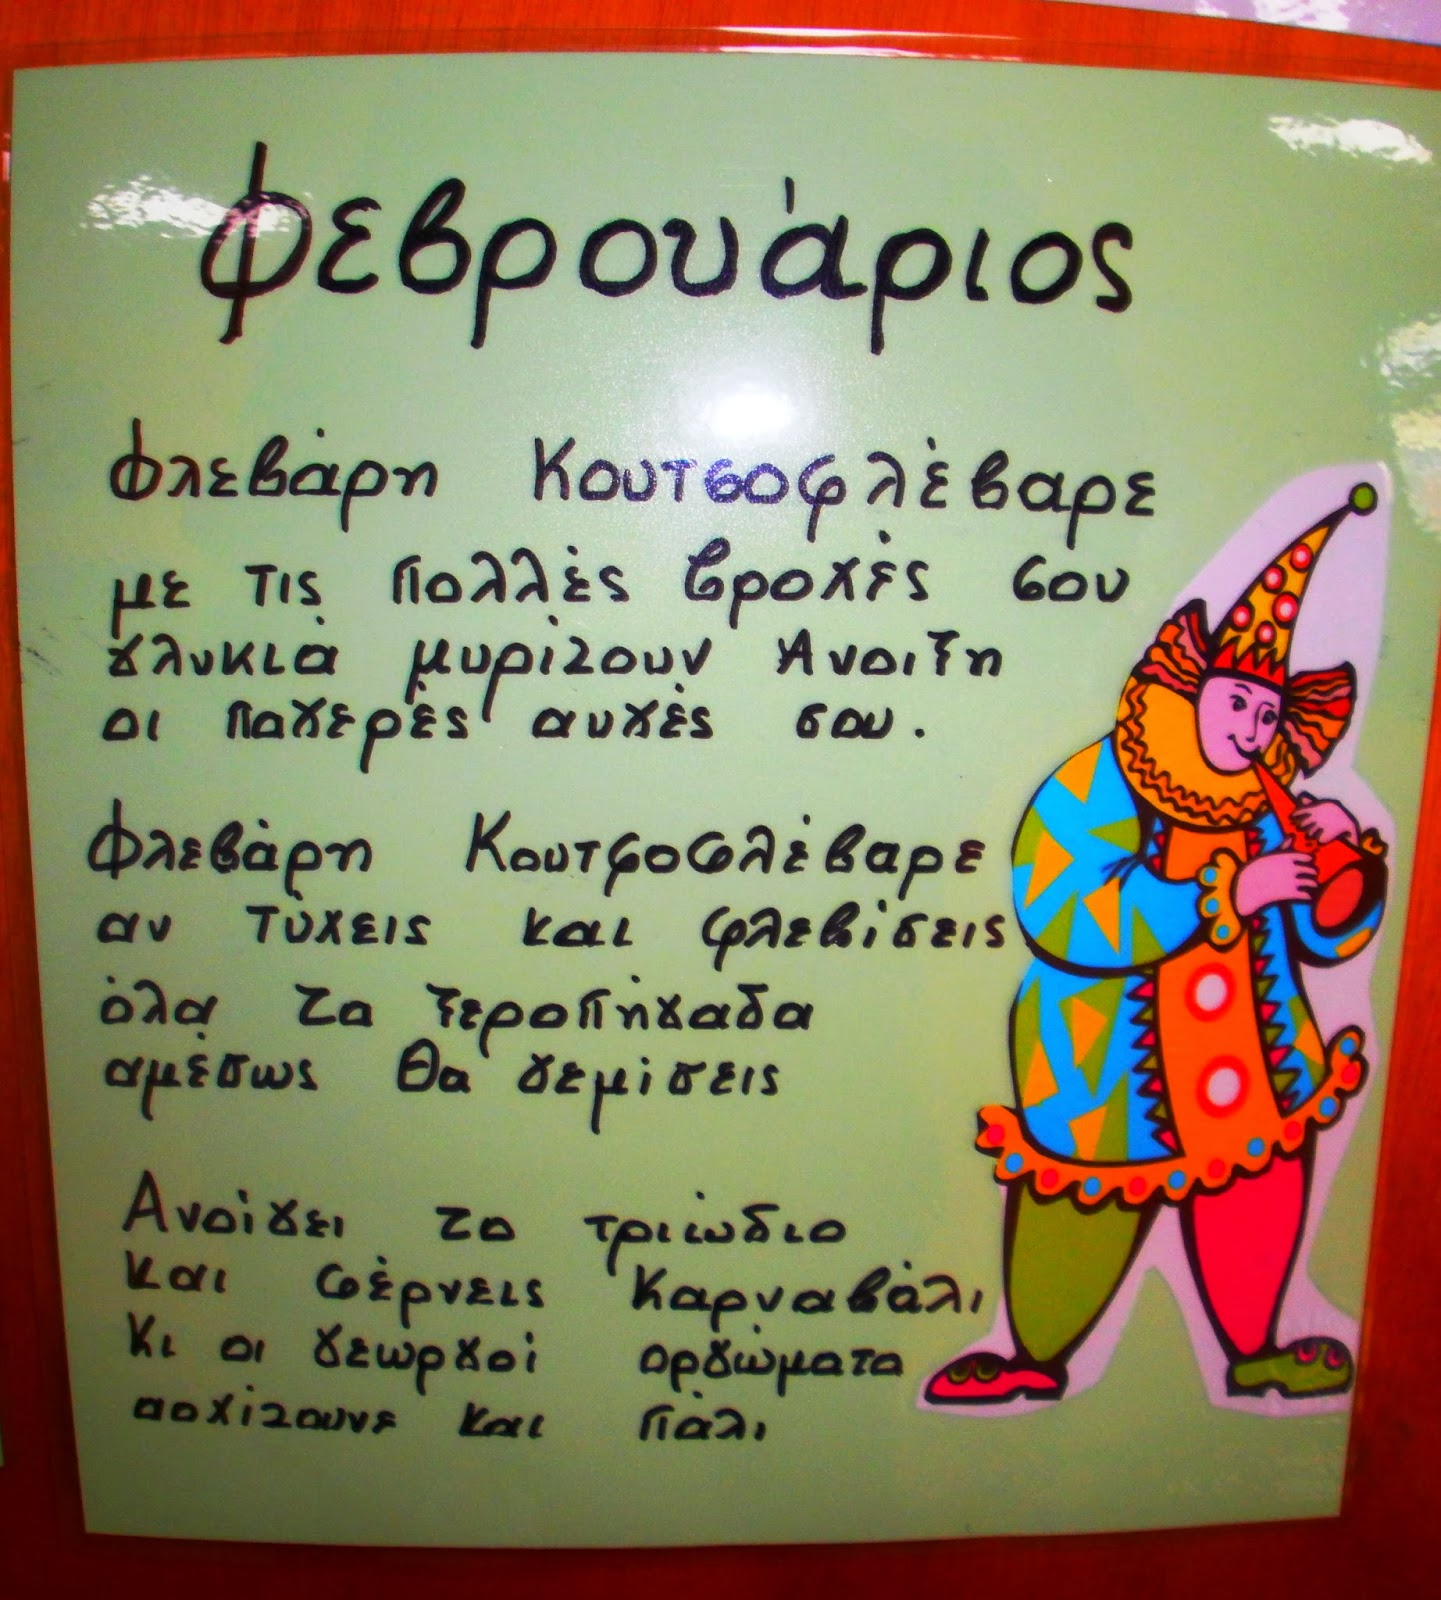 Φεβρουάριος
Φλεβάρη Κουτσοφλέβαρε
με τις πολλές βροχές σου
γλυκιά μυρίζουν Άνοιξη
οι παγερές αυγές σου.
Φλεβάρη Κουτσοφλέβαρε
αν τύχεις και φλεβίσεις
όλα τα ξεροπήγαδα
αμέσως θα γεμίσεις
Ανοίγει το τριώδιο
και φέρνεις Καρναβάλι
κι οι γεωργοί οργώματα
αρχίζουνε και πάλι